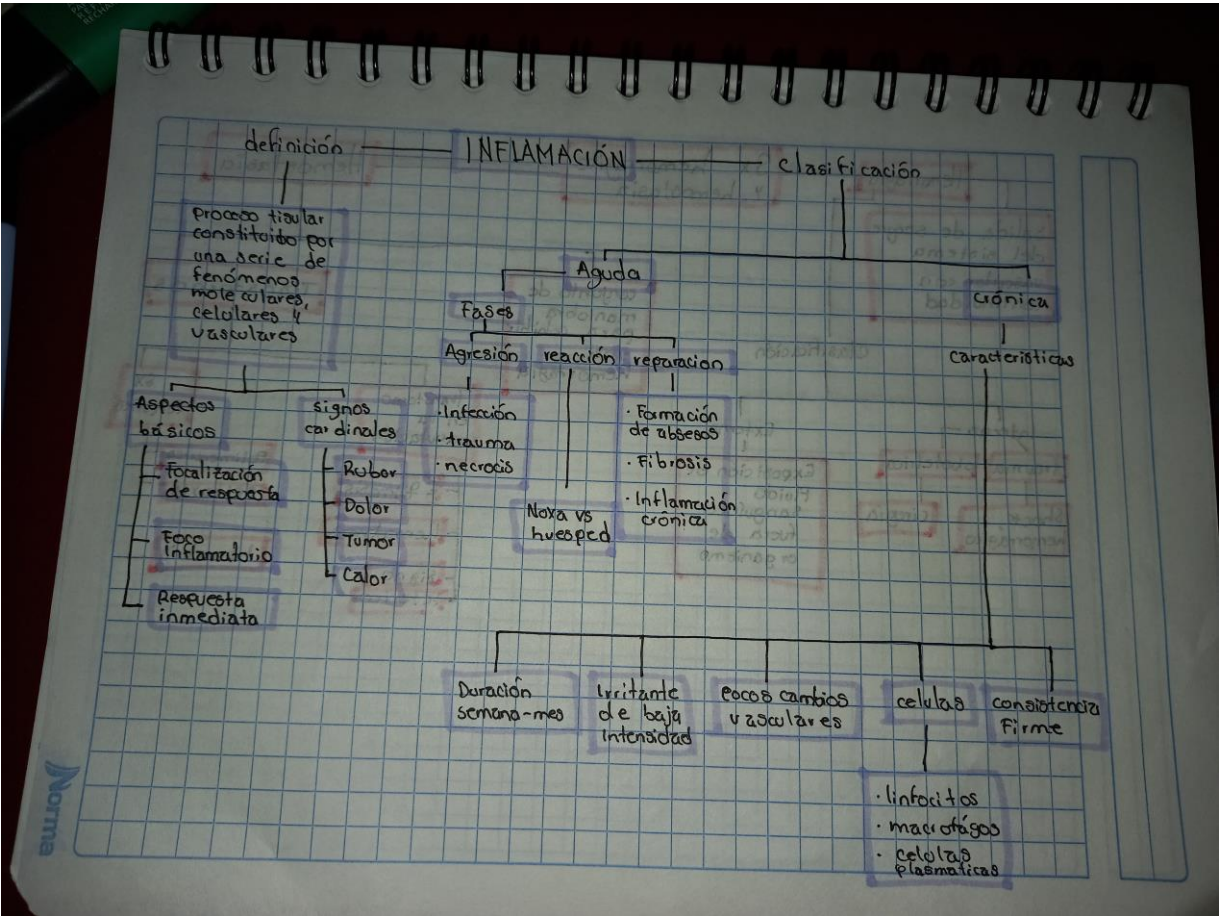 definición INFLAMACIÓN Clasificación
proceso tisular
constituido por
una serie de
fenómenos
moleculares,
celulares y
vasculares
Aspectos
básicos
Focalización
de respuesta
Foco
Inflamatorio
Respuesta
inmediata
signos
cardinales
Rubor
Dolor
Tumor
Calor
Aguda
Fases
Agresión
·Infección
·trauma
·necrocis
reacción
Noxa vs
huesped
reparacion
·Formación
de absesos
·Fibrosis
·Inflamación
crónica
crónica
caracteristicas
Duración
semana-mes
Irritante
de baja
intensidad
pocos cambios
vasculares
celulas
·linfocitos
·macrofágos
·celulas
plasmaticas
consistencia
Firme
Norma